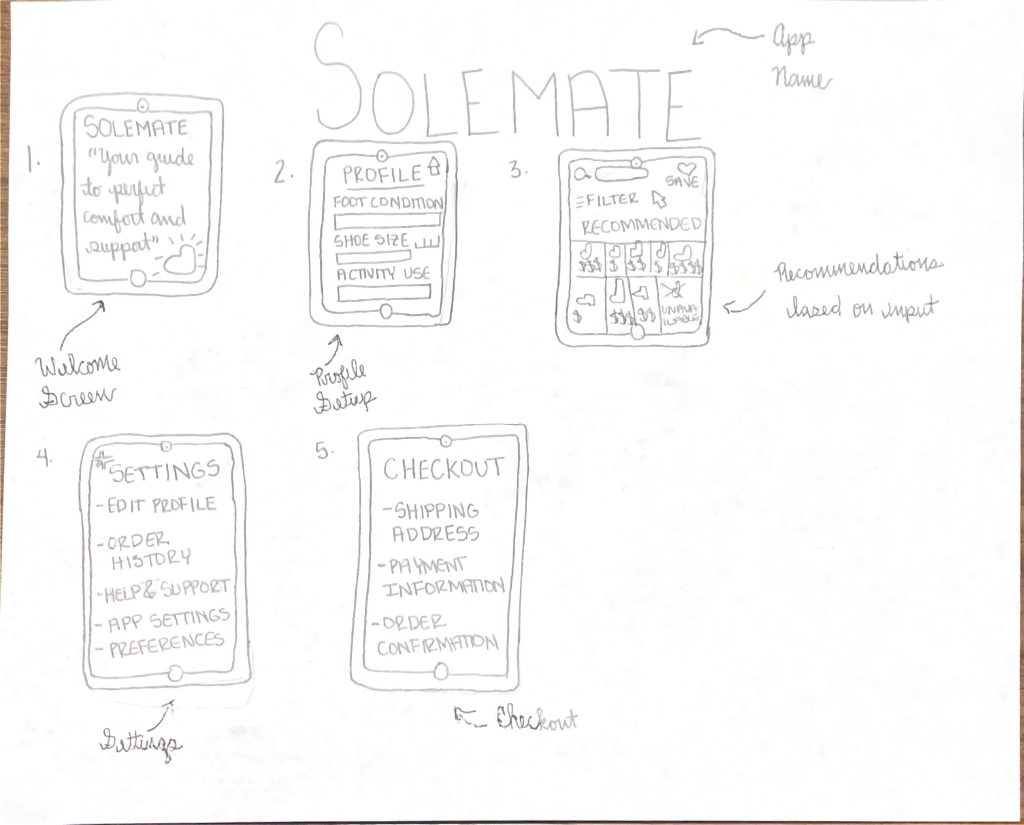 SOLEMATE
App
Name
1.
SOLEMATE
"Your guide
to perfect
comfort and
support"
Welcome
Screen
2.
PROFILE
FOOT CONDITION
SHOE SIZE
ACTIVITY USE
Profile
Setup
3.
SAVE
FILTER
RECOMMENDED
$$$ $ $$ $ $$$$
$ $$$ $$ UNAVA
ILABLE
Recommendations
based on input
4.
SETTINGS
- EDIT PROFILE
- ORDER
HISTORY
- HELP & SUPPORT
- APP SETTINGS
- PREFERENCES
Settings
5.
CHECKOUT
- SHIPPING
ADDRESS
- PAYMENT
INFORMATION
- ORDER
CONFIRMATION
Checkout